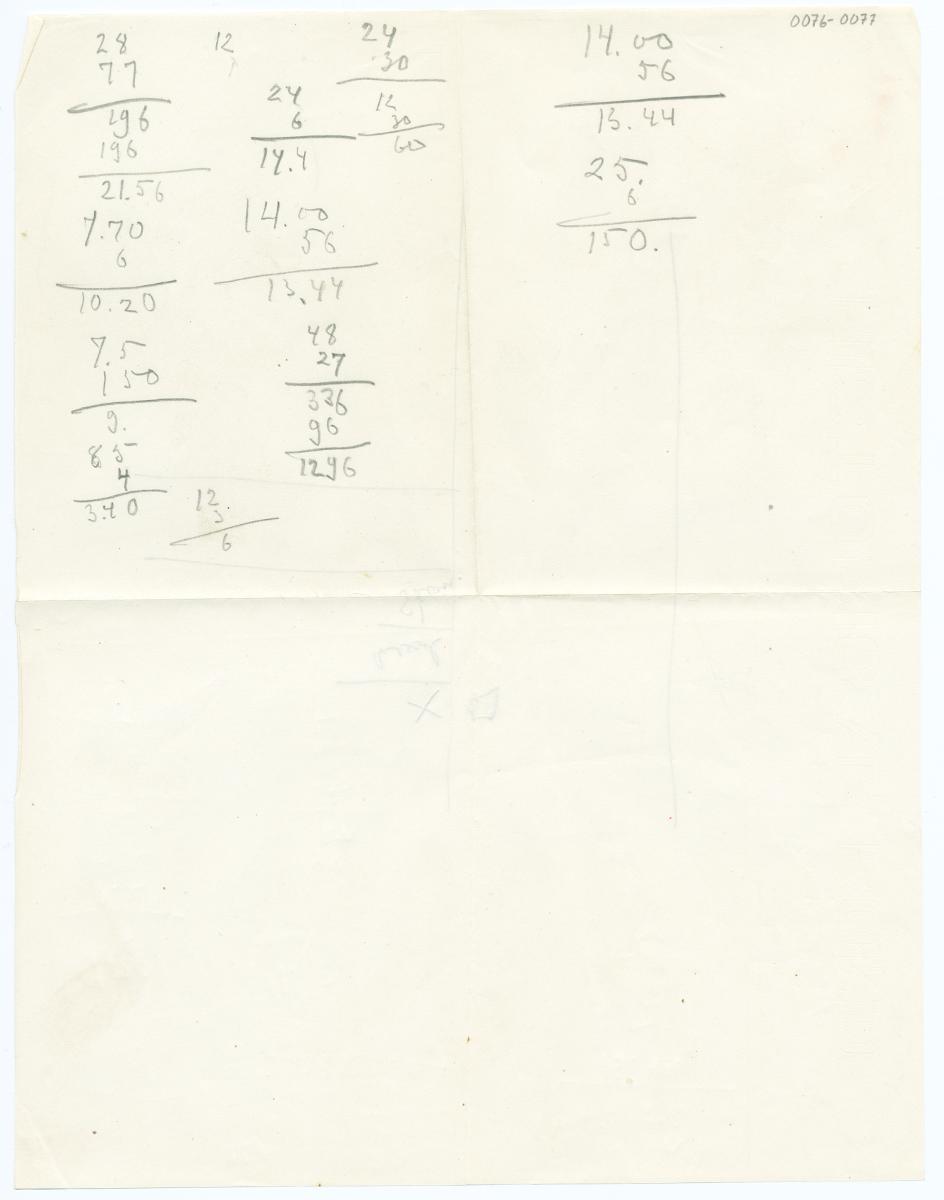 0076-0077
28
77
196
196
21.56
7.70
6
10.20
7.5
150
9.
85
4
3.40
12
12
3
6
24
6
14.4
24
30
12
30
60
14.00
56
13.44
48
27
336
96
1296
14.00
56
13.44
25.
6
150.